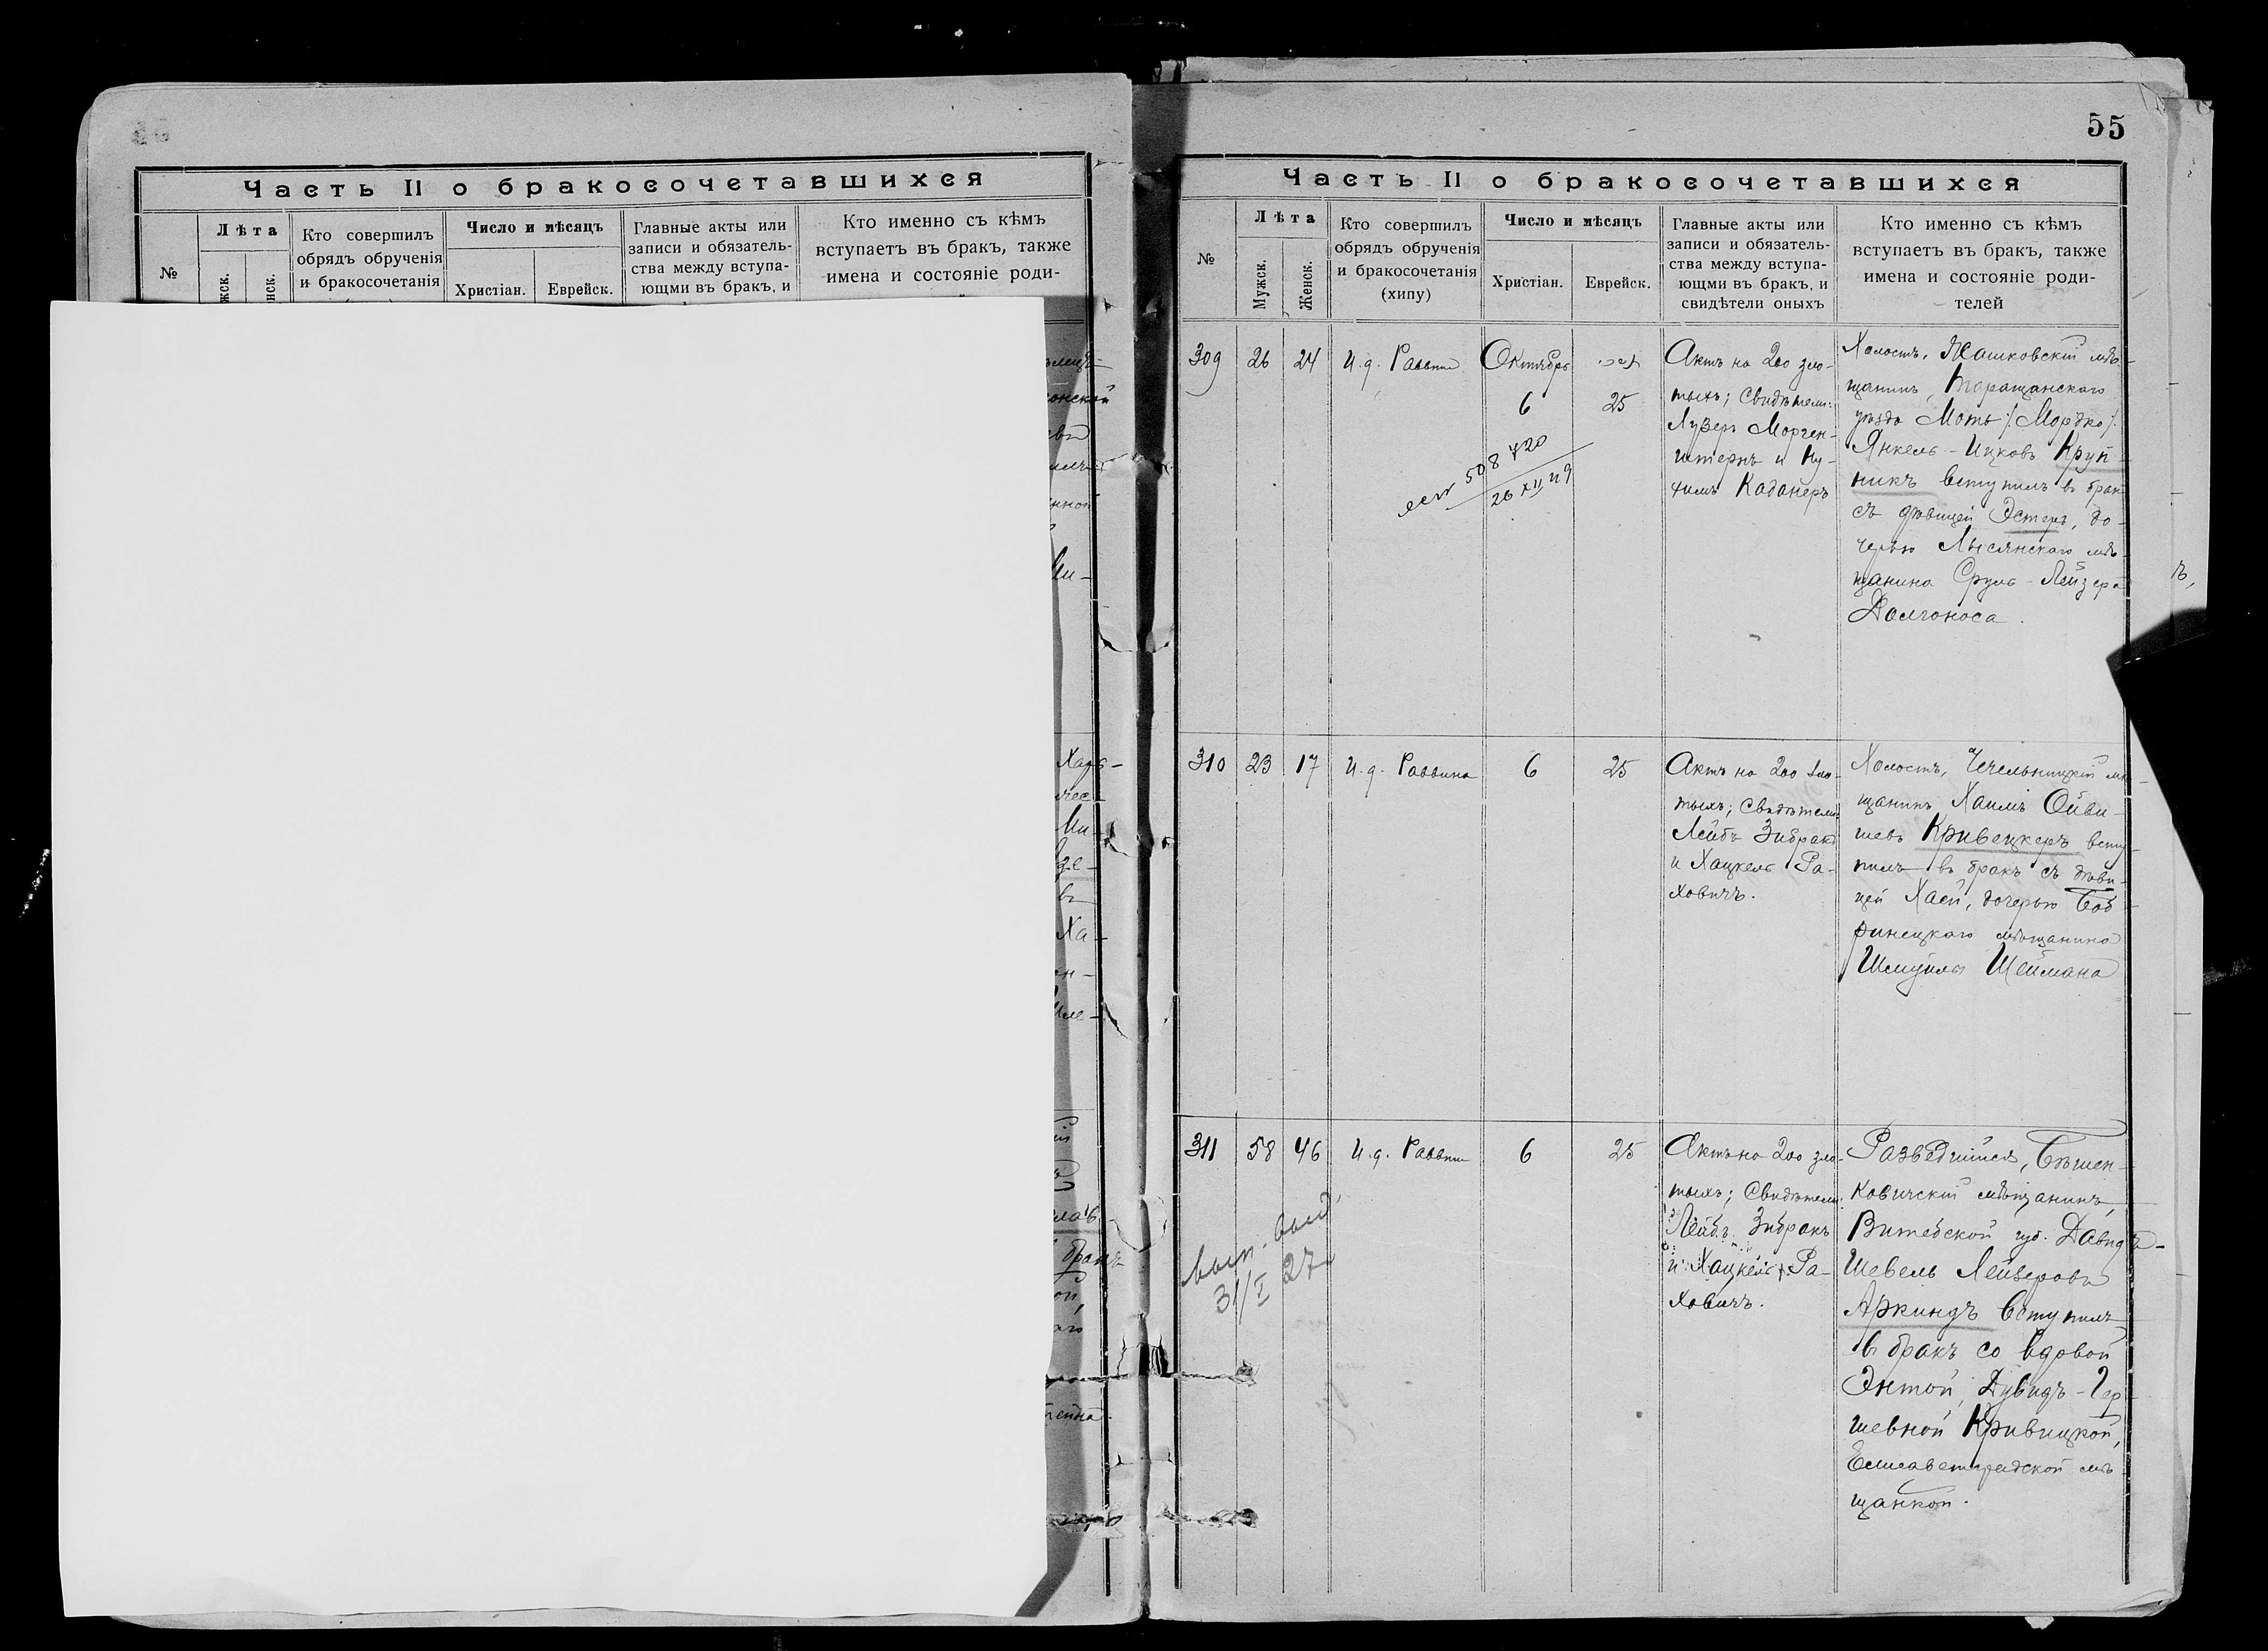 Часть II о бракосочетавшихся
№
Лѣта
Кто совершилъ
обрядъ обрученія
и бракосочетанія
Число и мѣсяцъ
Христіан.
Еврейск.
Главные акты или
записи и обязатель-
ства между вступа-
ющми въ бракъ, и
Кто именно съ кѣмъ
вступаетъ въ бракъ, также
имена и состояніе роди-
55
Часть II о бракосочетавшихся
№
Лѣта
Мужск.
Женск.
Кто совершилъ
обрядъ обрученія
и бракосочетанія
(хипу)
Число и мѣсяцъ
Христіан.
Еврейск.
Главные акты или
записи и обязатель-
ства между вступа-
ющми въ бракъ, и
свидѣтели оныхъ
Кто именно съ кѣмъ
вступаетъ въ бракъ, также
имена и состояніе роди-
телей
309
26
24
И.д. Раввина
Октябрь
6
25
508420
26 XII 29
Актъ на 200 зло-
тыхъ; Свидѣтели:
Лузеръ Морген-
штернъ и Ну-
химъ Каданеръ
Холостъ, Жашковскій мѣ-
щанинъ, Таращанскаго
уѣзда Моть /:Мордко/:
Янкель-Ицковъ Круп-
никъ вступилъ въ бракъ
съ дѣвицей Эстеръ, до-
черью Лысянскаго мѣ-
щанина Сруль-Лейзера
Долгоноса.
310
23
17
И.д. Раввина
6
25
Актъ на 200 зло-
тыхъ; Свидѣтели:
Лейбъ Зибракъ
и Хацкель Ра-
ховичъ.
Холостъ, Чечельницкій мѣ-
щанинъ Хаимъ Ойви-
шевъ Кривецкеръ всту-
пилъ въ бракъ съ дѣви-
цей Хаей, дочерью Боб-
ринецкаго мѣщанина
Шмуила Шеймана
311
58
46
И.д. Раввина
6
25
вып. выд.
31/I 27
Актъ на 200 зло-
тыхъ; Свидѣтели:
Лейбъ Зибракъ
и Хацкель Ра-
ховичъ.
Разведшійся, Бѣшен-
ковичскій мѣщанинъ,
Витебской губ. Давидъ-
Шевель Лейзеровъ
Аркиндъ вступилъ
въ бракъ со вдовой
Энтой, Дувидъ-Гер-
шевной Кривицкой,
Елисаветградской мѣ-
щанкой.